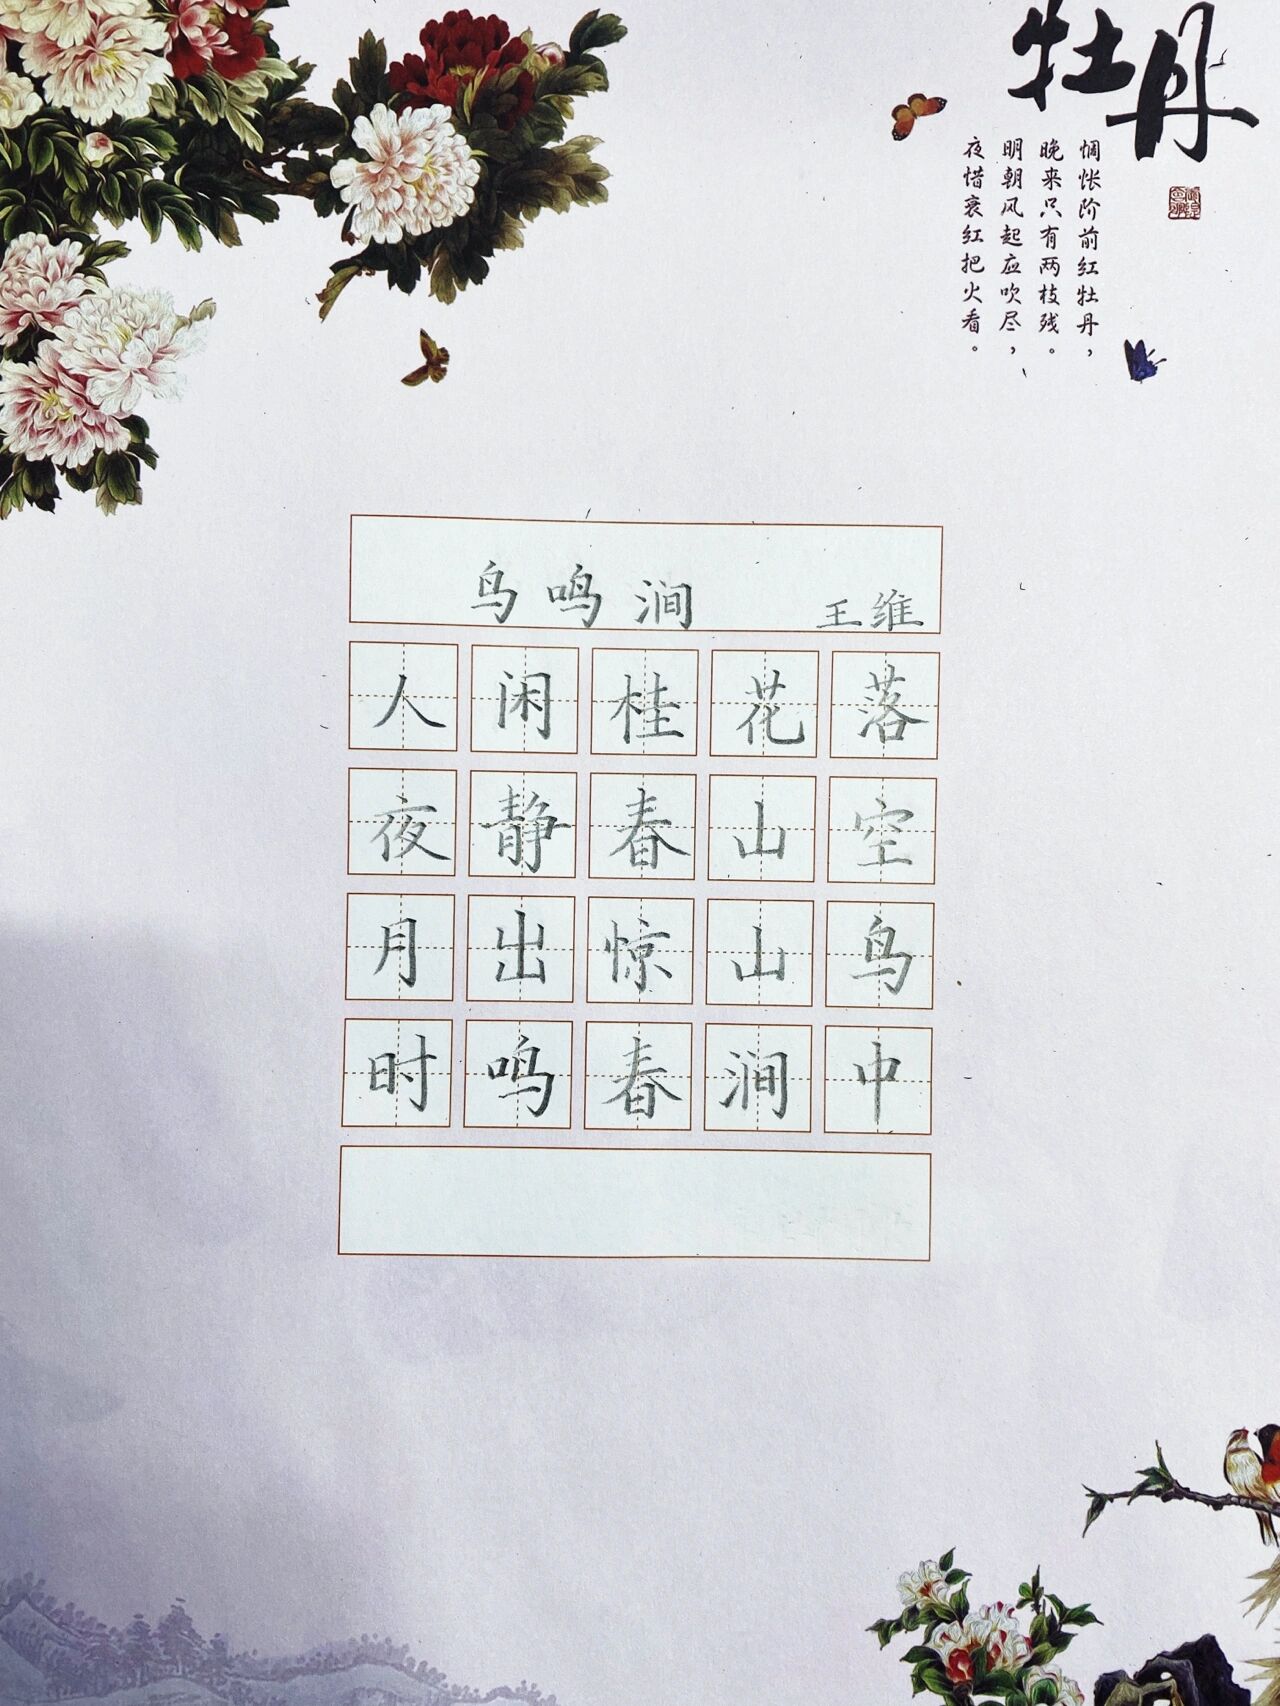 牡丹
惆怅阶前红牡丹，
晚来只有两枝残。
明朝风起应吹尽，
夜惜衰红把火看。
鸟鸣涧 王维
人闲桂花落
夜静春山空
月出惊山鸟
时鸣春涧中